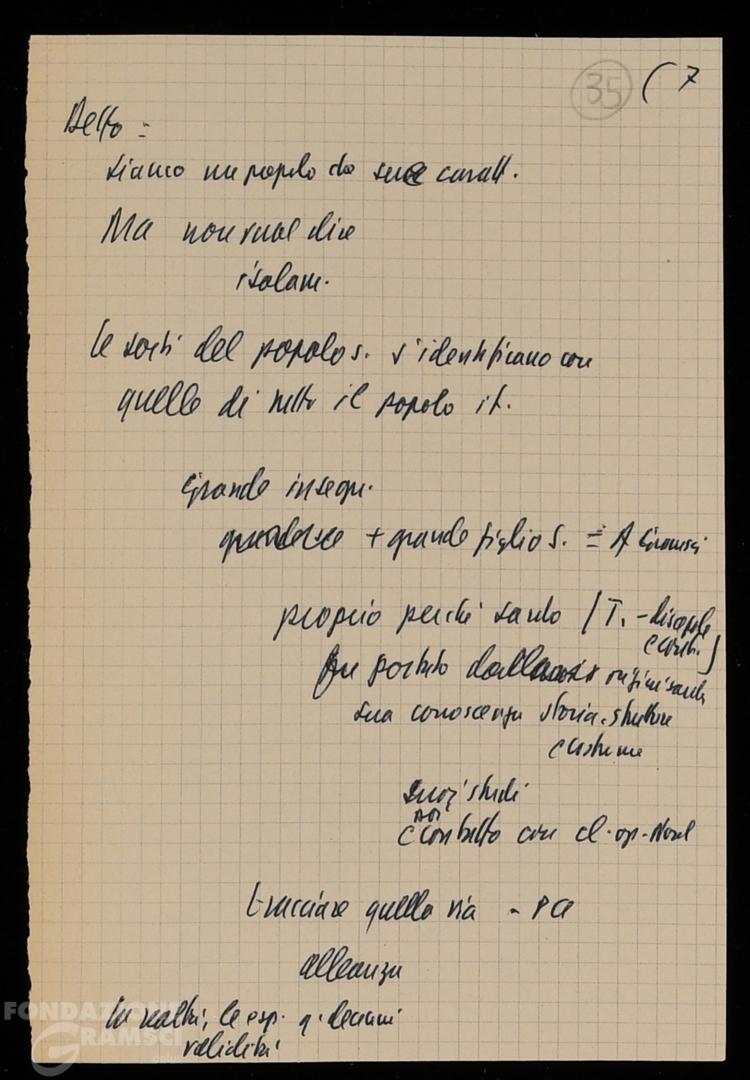 35 ( 7
Detto =
siamo un popolo da sue caratt.
Ma non vuol dire
isolam.
le sorti del popolo s. s'identificano con
quelle di tutto il popolo it.
Grande insegn.
+ grande figlio S. = A Gramsci
proprio perché sardo (T. - discepolo
e contin.)
fu portato dalla origini sarde
sua conoscenza storia. strutture
e costume
suoi studi
poi
contatto con cl. op. Nord
tracciare quella via - PCI
alleanza
la realtà, le esp. q. decenni
validità
FONDAZIONE
GRAMSCI